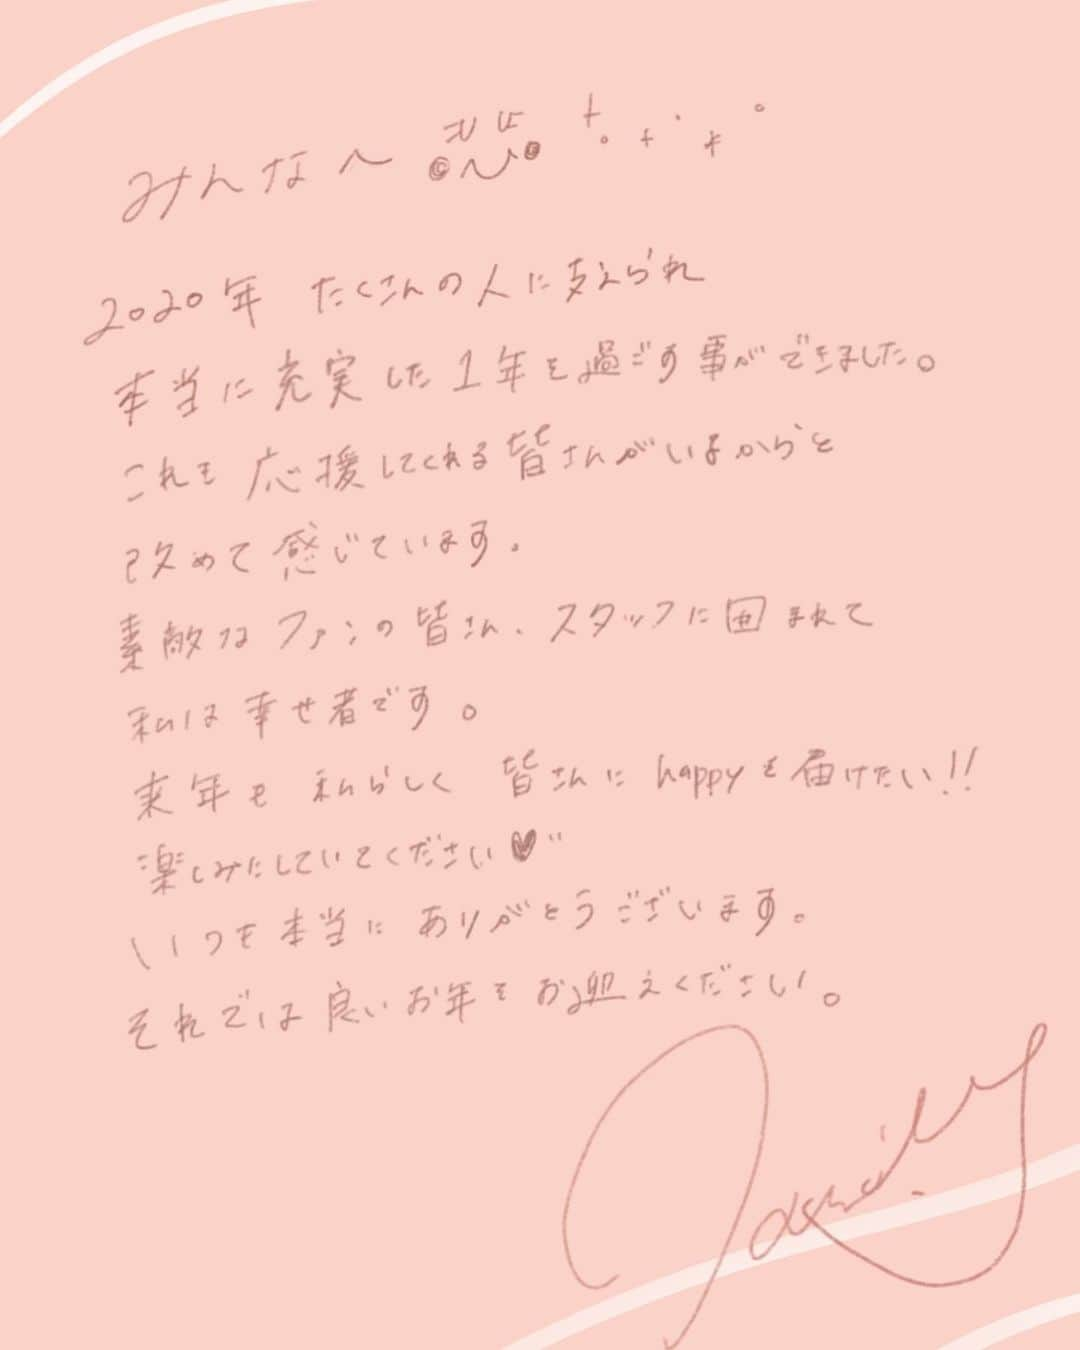 みんな〜
2020年 たくさんの人に支えられ
本当に充実した1年を過ごす事ができました。
これも 応援してくれる皆さんがいるからと
改めて感じています。
素敵なファンの皆さん、スタッフに囲まれて
私は幸せ者です。
来年も 私らしく 皆さんに happyを届けたい!!
楽しみにしていてください♥
いつも本当に ありがとうございます。
それでは良いお年をお迎えください。